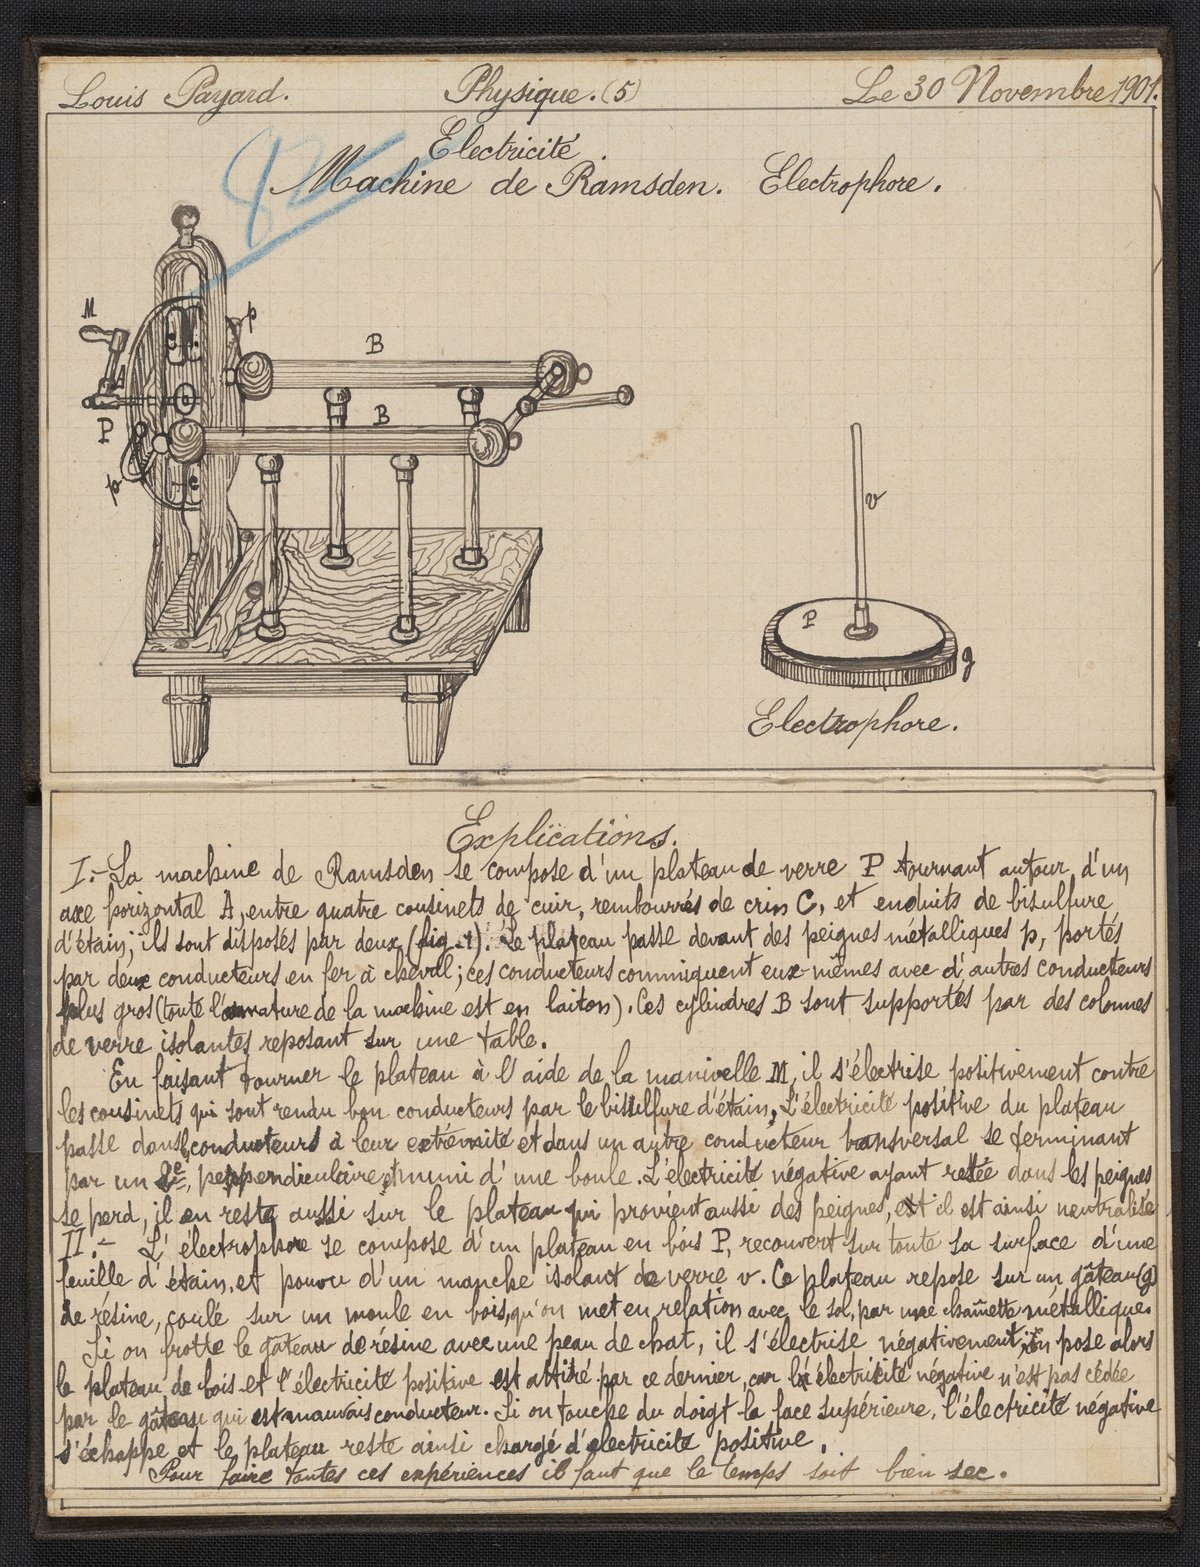 Louis Payard. Physique. (5) Le 30 Novembre 1901.
Electricité.
Machine de Ramsden. Electrophore.
M
p
B
B
P
p
c
v
P
g
Electrophore.
Explications.
I.- La machine de Ramsden se compose d'un plateau de verre P tournant autour d'un
axe horizontal A, entre quatre cousinets de cuir, rembourrés de crin C, et enduits de bisulfure
d'étain; ils sont disposés par deux (fig. 1). Le plateau passe devant des peignes métalliques p, portés
par deux conducteurs en fer à cheval; ces conducteurs commniquent eux-mêmes avec d'autres conducteurs
plus gros (toute l'armature de la machine est en laiton). Ces cylindres B sont supportés par des colonnes
de verre isolantes reposant sur une table.
En faisant tourner le plateau à l'aide de la manivelle M, il s'électrise positivement contre
les cousinets qui sont rendu bon conducteurs par le bisulfure d'étain. L'électricité positive du plateau
passe dans conducteurs à leur extrémité et dans un autre conducteur transversal se terminant
par un 2e, perpendiculaire et muni d'une boule. L'électricité négative ayant restée dans les peignes
se perd, il en reste aussi sur le plateau qui provient aussi des peignes, et il est ainsi neutralisé
II.- L'électrophore se compose d'un plateau en bois P, recouvert sur toute sa surface d'une
feuille d'étain, et pourvu d'un manche isolant de verre v. Ce plateau repose sur un gâteau (g)
de résine, coulé sur un moule en bois, qu'on met en relation avec le sol, par une chaînette métallique.
Si on frotte le gâteau de résine avec une peau de chat, il s'électrise négativement; on pose alors
le plateau de bois et l'électricité positive est attiré par ce dernier, car l'électricité négative n'est pas cédée
par le gâteau qui est mauvais conducteur. Si on touche du doigt la face supérieure, l'électricité négative
s'échappe et le plateau reste ainsi chargé d'électricité positive.
Pour faire toutes ces expériences il faut que le temps soit bien sec.